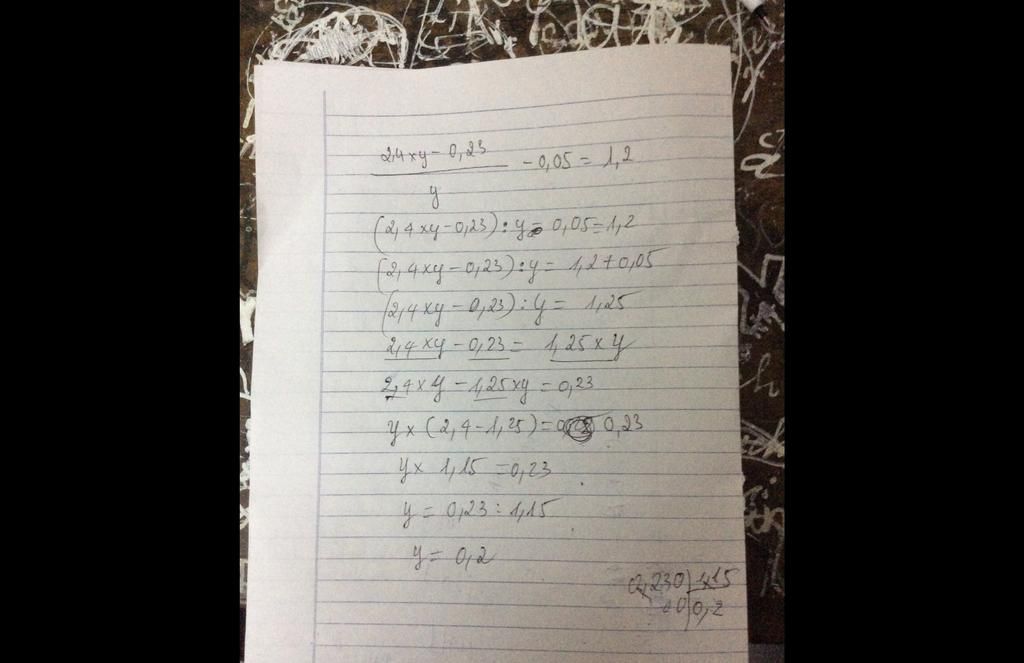 2,4 x y - 0,23
- 0,05 = 1,2
y
(2,4 x y - 0,23) : y - 0,05 = 1,2
(2,4 x y - 0,23) : y = 1,2 + 0,05
(2,4 x y - 0,23) : y = 1,25
2,4 x y - 0,23 = 1,25 x y
2,4 x y - 1,25 x y = 0,23
y x (2,4 - 1,25) = 0,23
y x 1,15 = 0,23
y = 0,23 : 1,15
y = 0,2
0,230 1,15
00 0,2